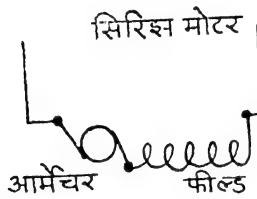 सिरिझ मोटर
आर्मेचर फील्ड